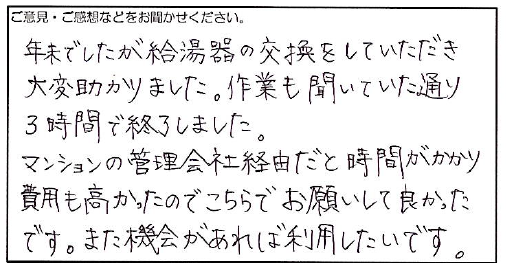 ご意見・ご感想などをお聞かせください。
年末でしたが給湯器の交換をしていただき
大変助かりました。作業も聞いていた通り
3時間で終了しました。
マンションの管理会社経由だと時間がかかり
費用も高かったのでこちらでお願いして良かった
です。また機会があれば利用したいです。